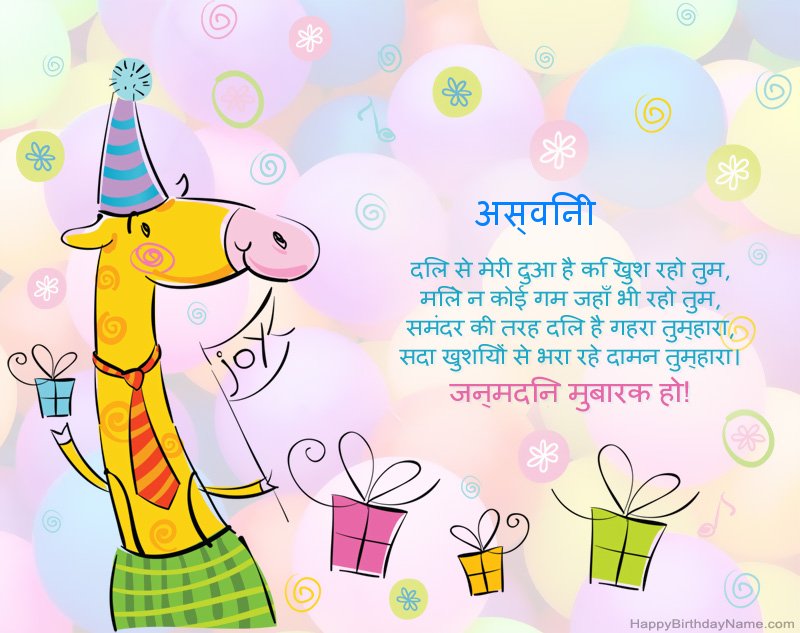 अस्वनिी
दलि से मेरी दुआ है कि खुश रहो तुम,
मलिे न कोई गम जहाँ भी रहो तुम,
समंदर की तरह दलि है गहरा तुम्हारा,
सदा खुशयिों से भरा रहे दामन तुम्हारा।
जन्मदनि मुबारक हो!
joy
HappyBirthdayName.com